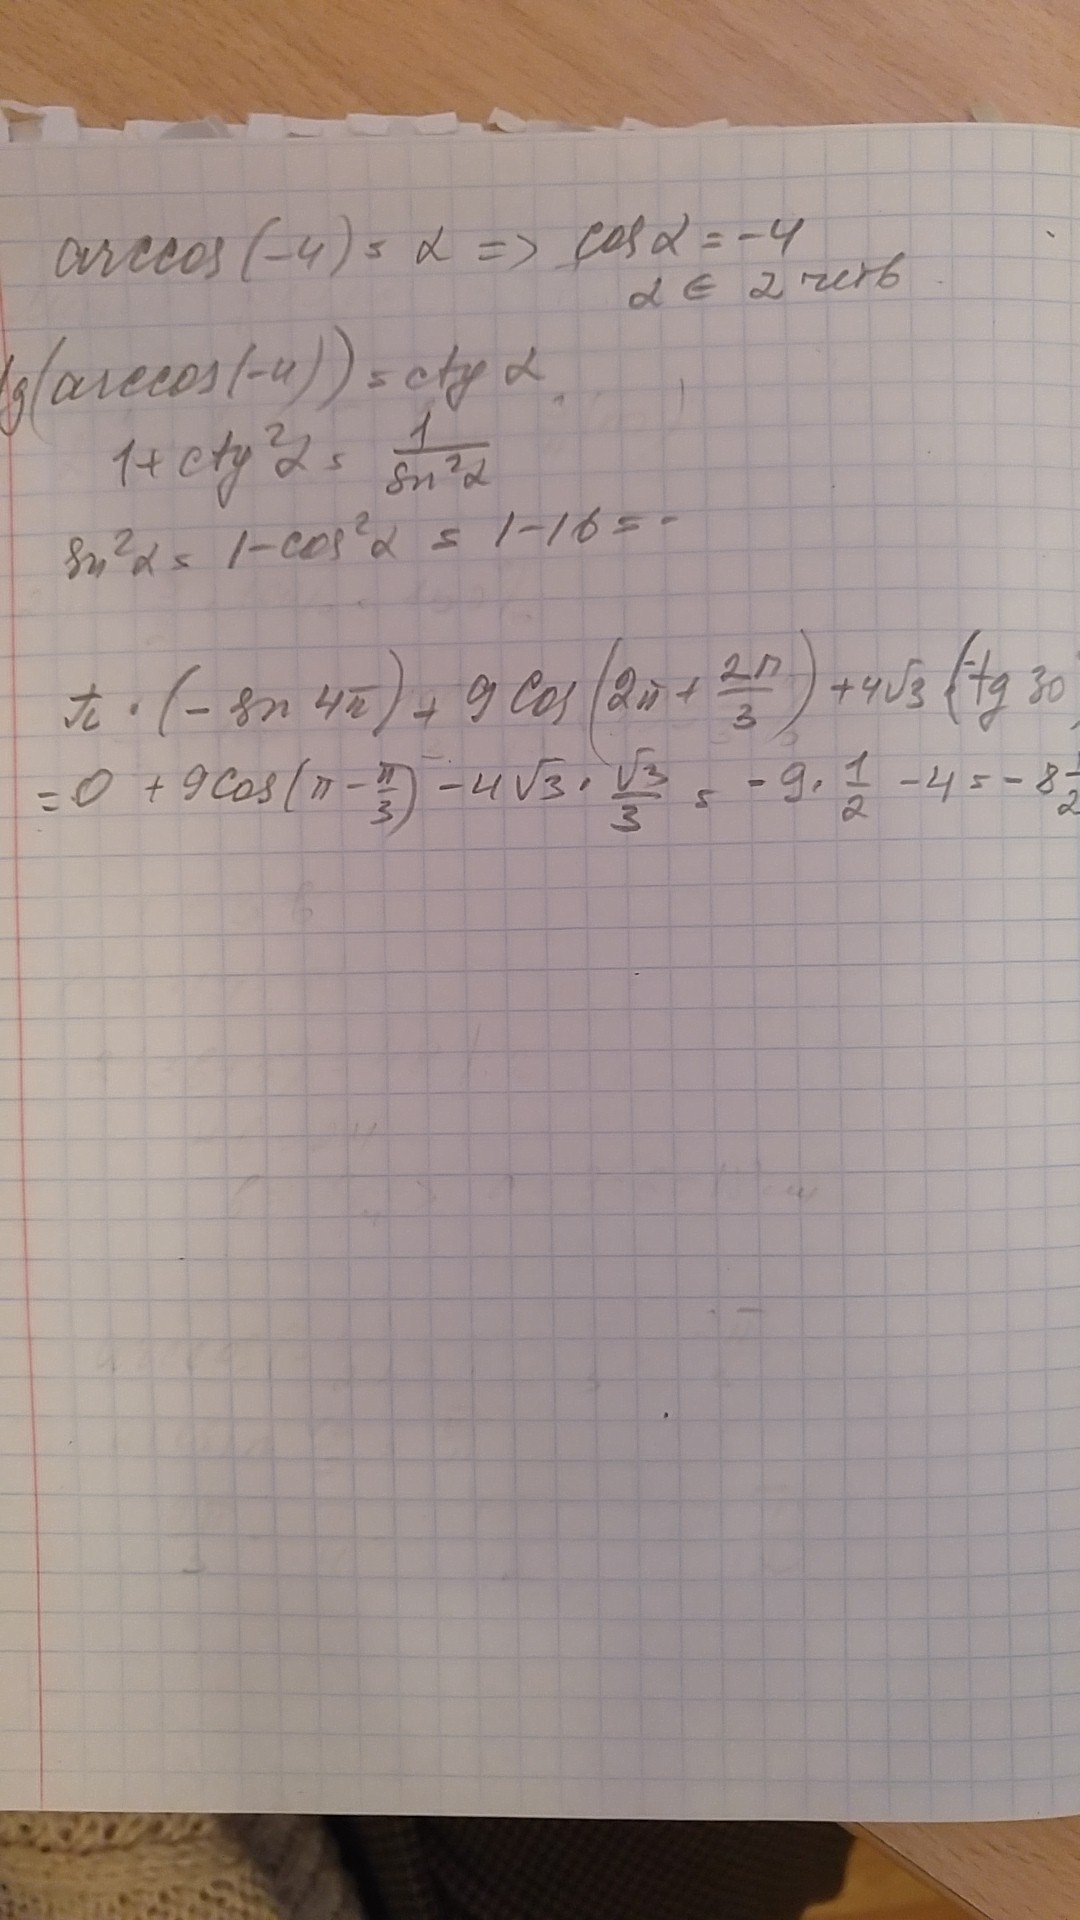 arccos(-4) = α => cos α = -4
α ∈ 2 четв
tg(arccos(-4)) = ctg α
1 + ctg²α = 1/sin²α
sin²α = 1 - cos²α = 1 - 16 = -
π · (- sin 4π) + 9 cos(2π + 2π/3) + 4√3 (-tg 30
= 0 + 9 cos(π - π/3) - 4√3 · √3/3 = -9 · 1/2 - 4 = -8 1/2